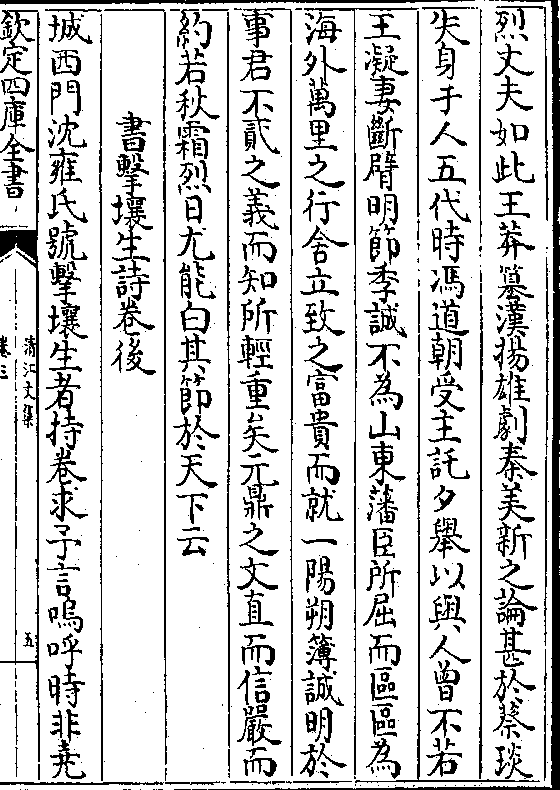 烈丈夫如此王莽簒漢揚雄劇秦美新之論甚於蔡琰
失身于人五代時馮道朝受主託夕舉以與人曾不若
王凝妻斷臂明節季誠不為山東藩臣所屈而區區為
海外萬里之行舍立致之富貴而就一陽朔簿誠明於
事君不貳之義而知所輕重矣元鼎之文直而信嚴而
約若秋霜烈日尤能白其節於天下云
書擊壤生詩卷後
城西門沈雍氏號擊壤生者持卷求予言嗚呼時非堯
欽定四庫全書
清江文集
卷三
五